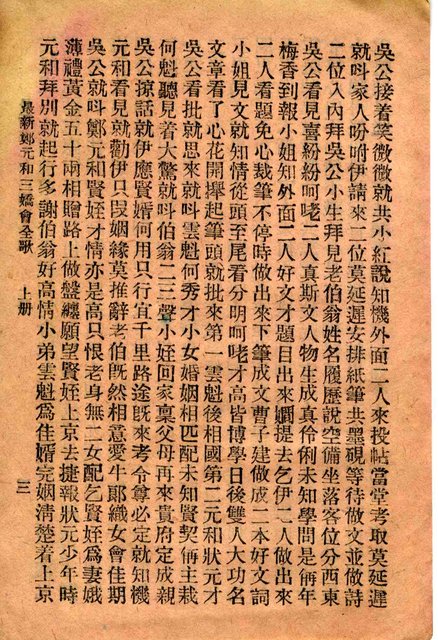 吳公接着笑微微就共小紅說知機外面二人來投帖當堂考取莫延遲
就呌家人吩咐伊請來二位莫延遲安排紙筆共墨硯等待做文並做詩
二位入內拜吳公小生拜見老伯翁姓名履歷說空備坐落客位分西東
吳公看見喜紛紛呵咾二人真斯文人物生成真伶俐未知學問是侢年
梅香到報小姐知外面二人好文才題目出來嫺提去乞伊二人做出來
二人看題免心思裁筆不停時做出來下筆成文曹子建做成二本好文詞
小姐見文就知情從頭至尾看分明呵咾才高皆博學日後雙人大功名
文章看了心花開攑起筆頭就批來第一雲魁後相國第二元和狀元才
吳公看批就思來就呌雲魁何秀才小女婚姻相匹配未知賢契侢主裁
何魁聽見着大驚就呌伯翁二三聲小姪回家稟父母再來貴府定成親
吳公掠話就伊應賢婿何用只行宜千里路途既來考令尊必定就知機
元和看見就勸伊只叚姻緣莫推辭老伯既然相意愛牛郎織女會佳期
吳公就呌鄭元和賢姪才情亦是高只恨老身無二女配乞賢姪為妻娥
薄禮黃金五十兩相贈路上做盤纏願望賢姪上京去捷報狀元少年時
元和拜別就起行多謝伯翁好高情小弟雲魁為佳婿完姻清楚着上京
最新鄭元和三嬌會全歌 上册 三